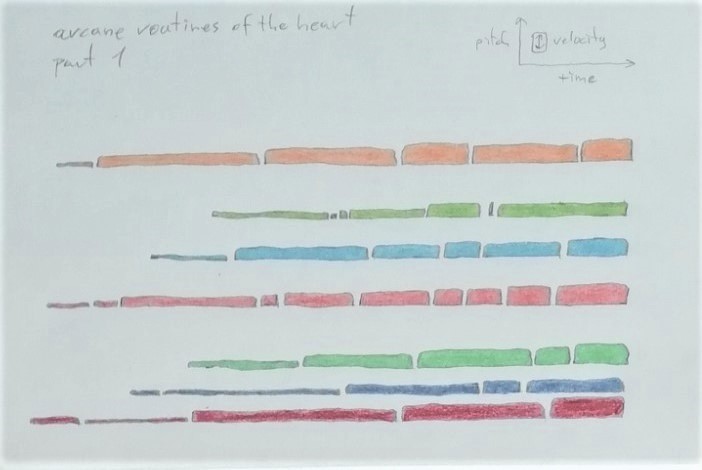 arcane routines of the heart
part 1
pitch
velocity
time